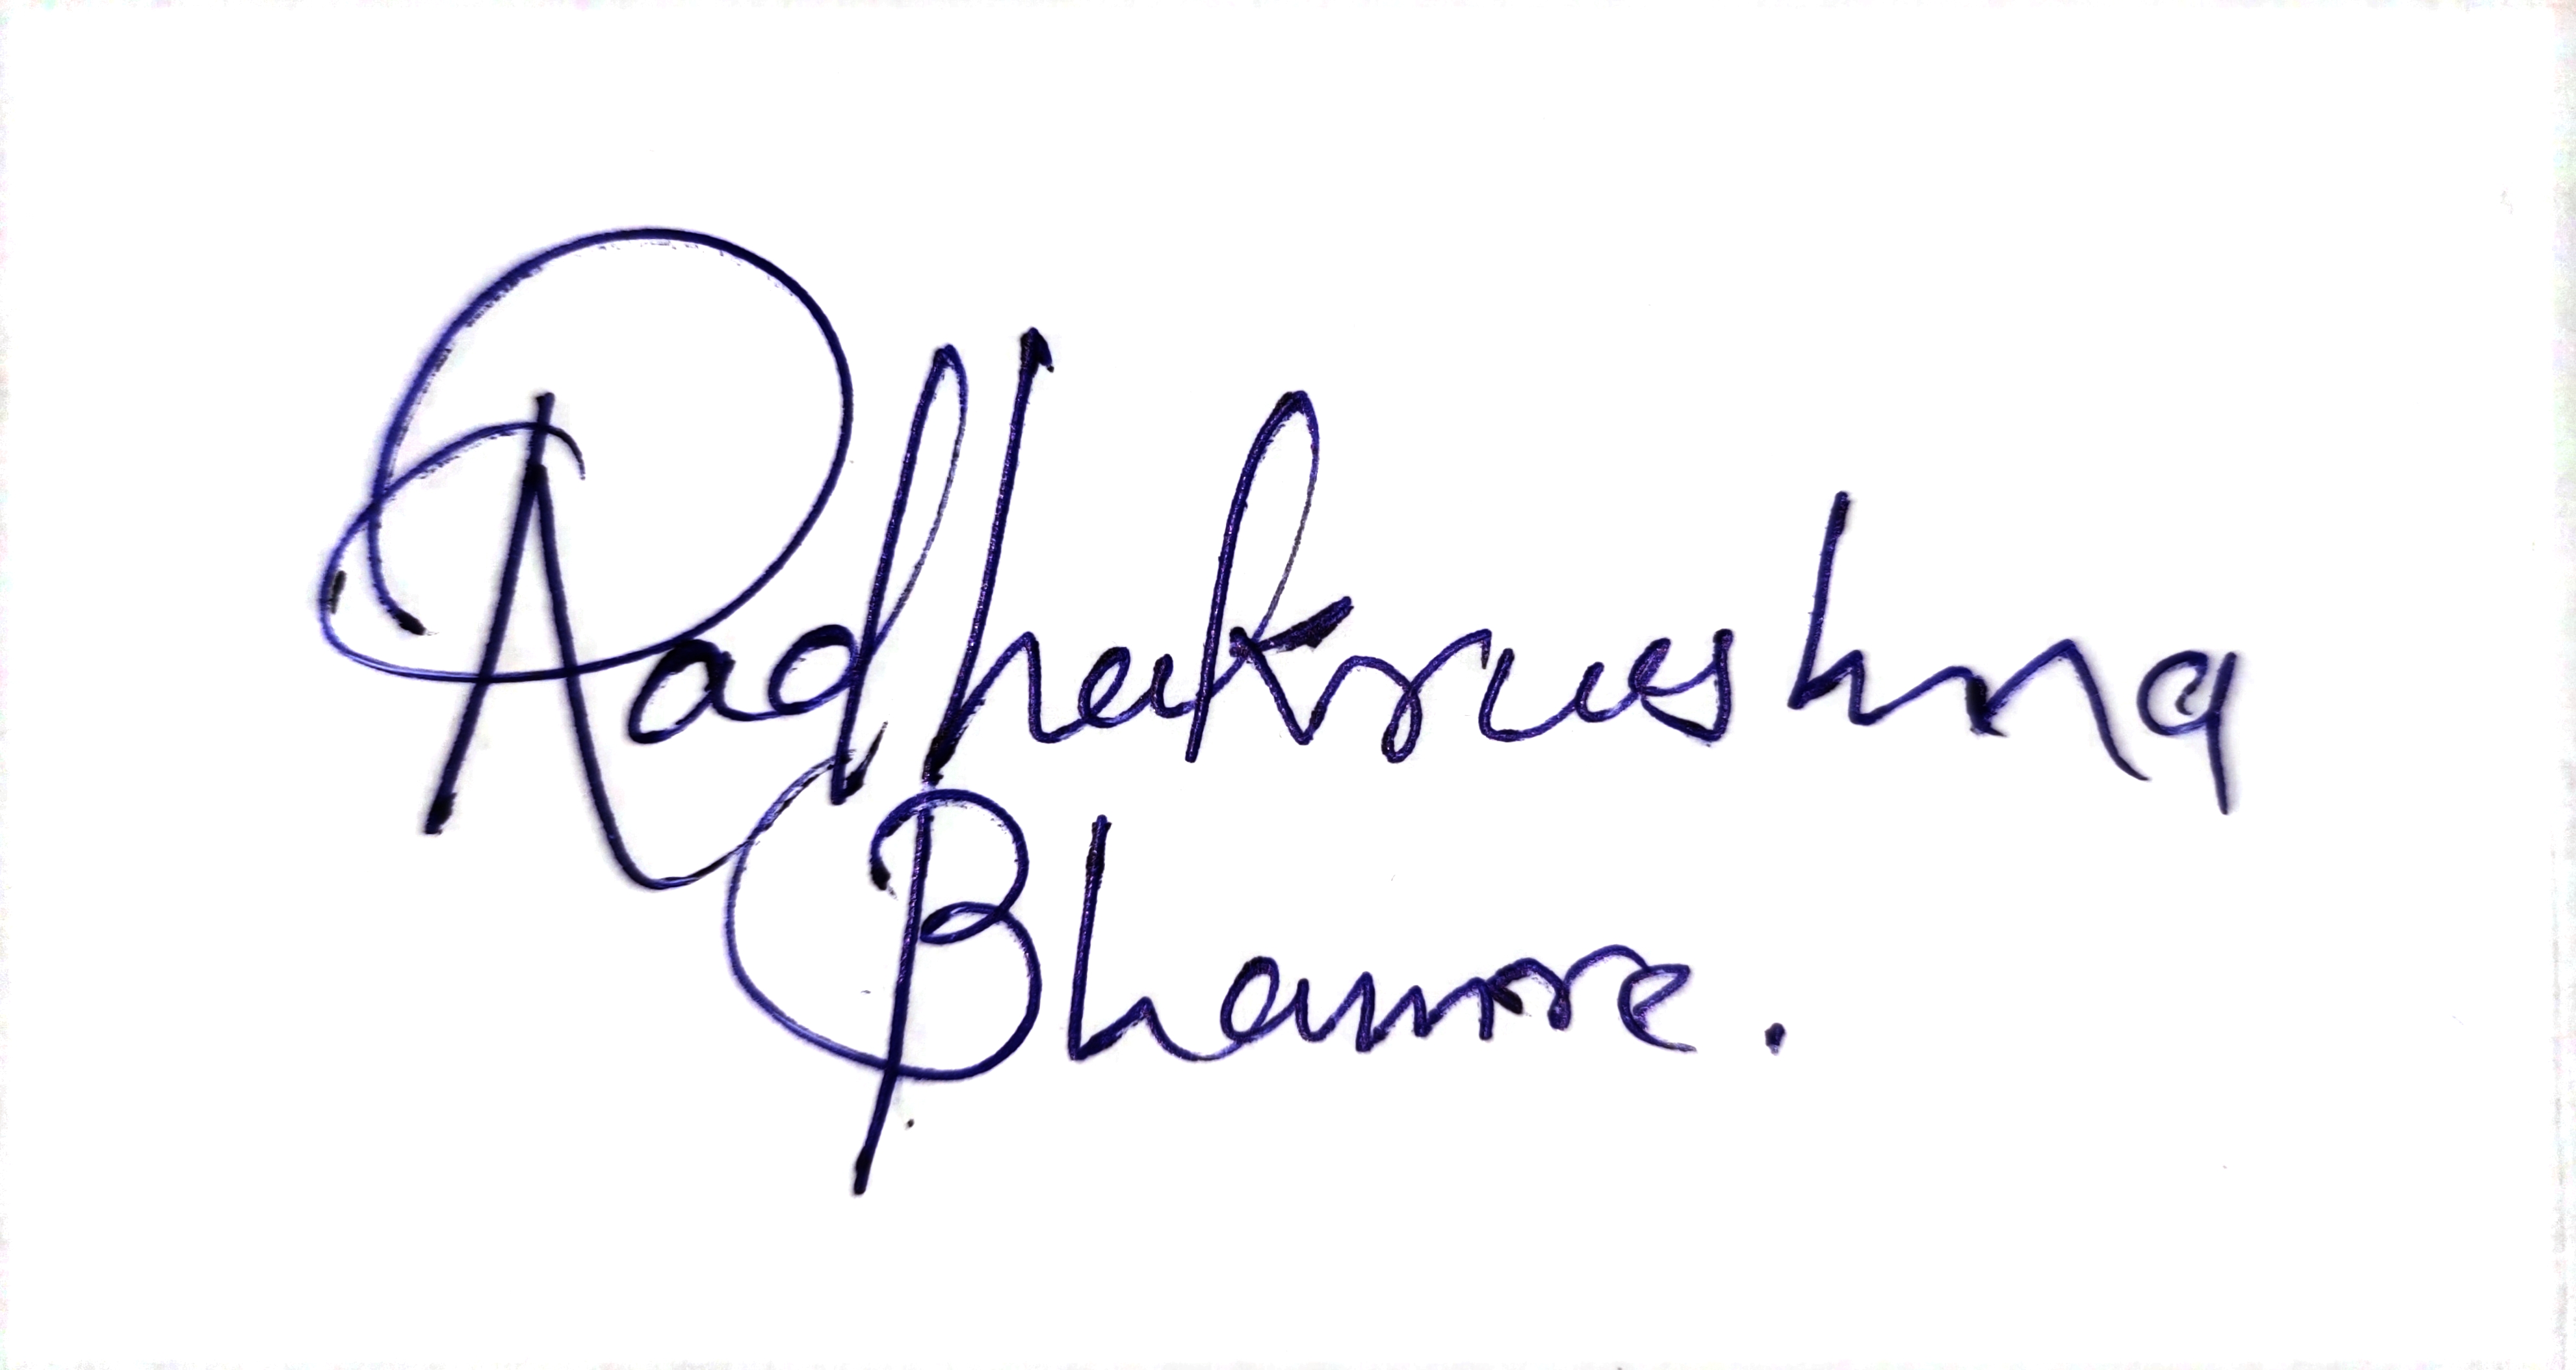 Radhakrushna
Bhamre.